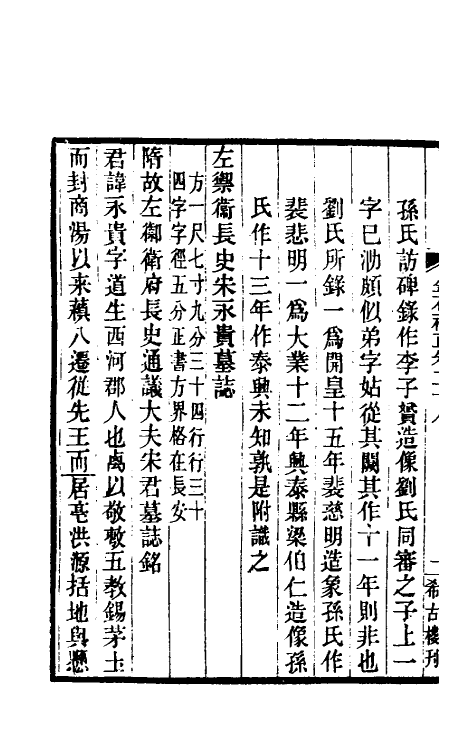 孫氏訪碑錄作李子贇造像劉氏同審之子上一
字已泐頗似弟字姑從其闕其作十一年則非也
劉氏所錄一爲開皇十五年裴慈明造象孫氏作
裴悲明一爲大業十二年興泰縣梁伯仁造像孫
氏作十三年作泰興未知孰是附識之
左禦衛長史宋永貴墓誌
方一尺七寸九分三十四行行三十
四字字徑五分正書方界格在長安
隋故左禦衛府長史通議大夫宋君墓誌銘
君諱永貴字道生西河郡人也禼以敬敷五教錫茅土
而封商湯以來蘱八遷從先王而居亳洪源括地與懸
希古樓刊